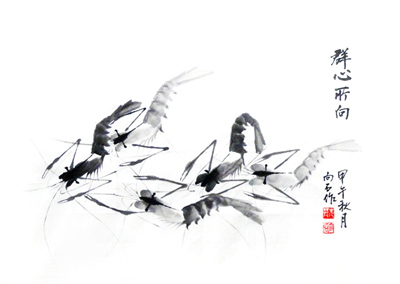 群心所向
甲午秋月
向石作